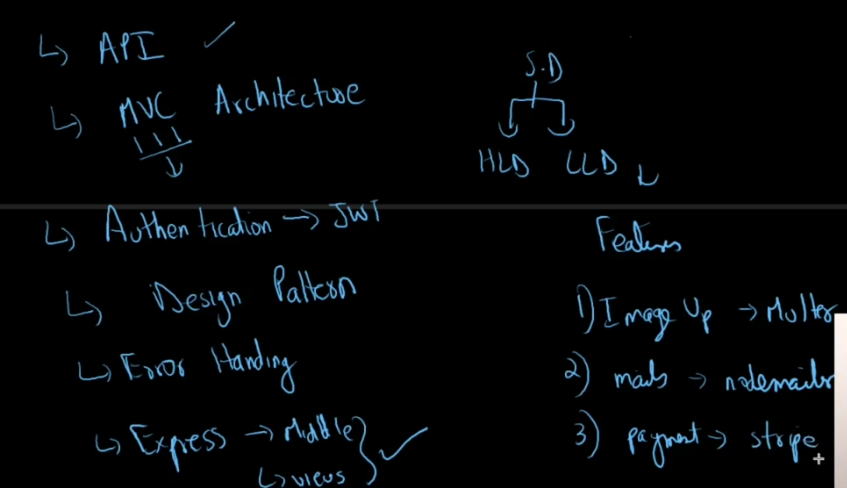 ↳ API ✓
↳ MVC Architecture
↳ Authentication → JWT
↳ Design Pattern
↳ Error Handing
↳ Express → Middle
↳ views
S.D
HLD LLD
Features
1) Image Up → Multer
2) mails → nodemailer
3) payment → stripe